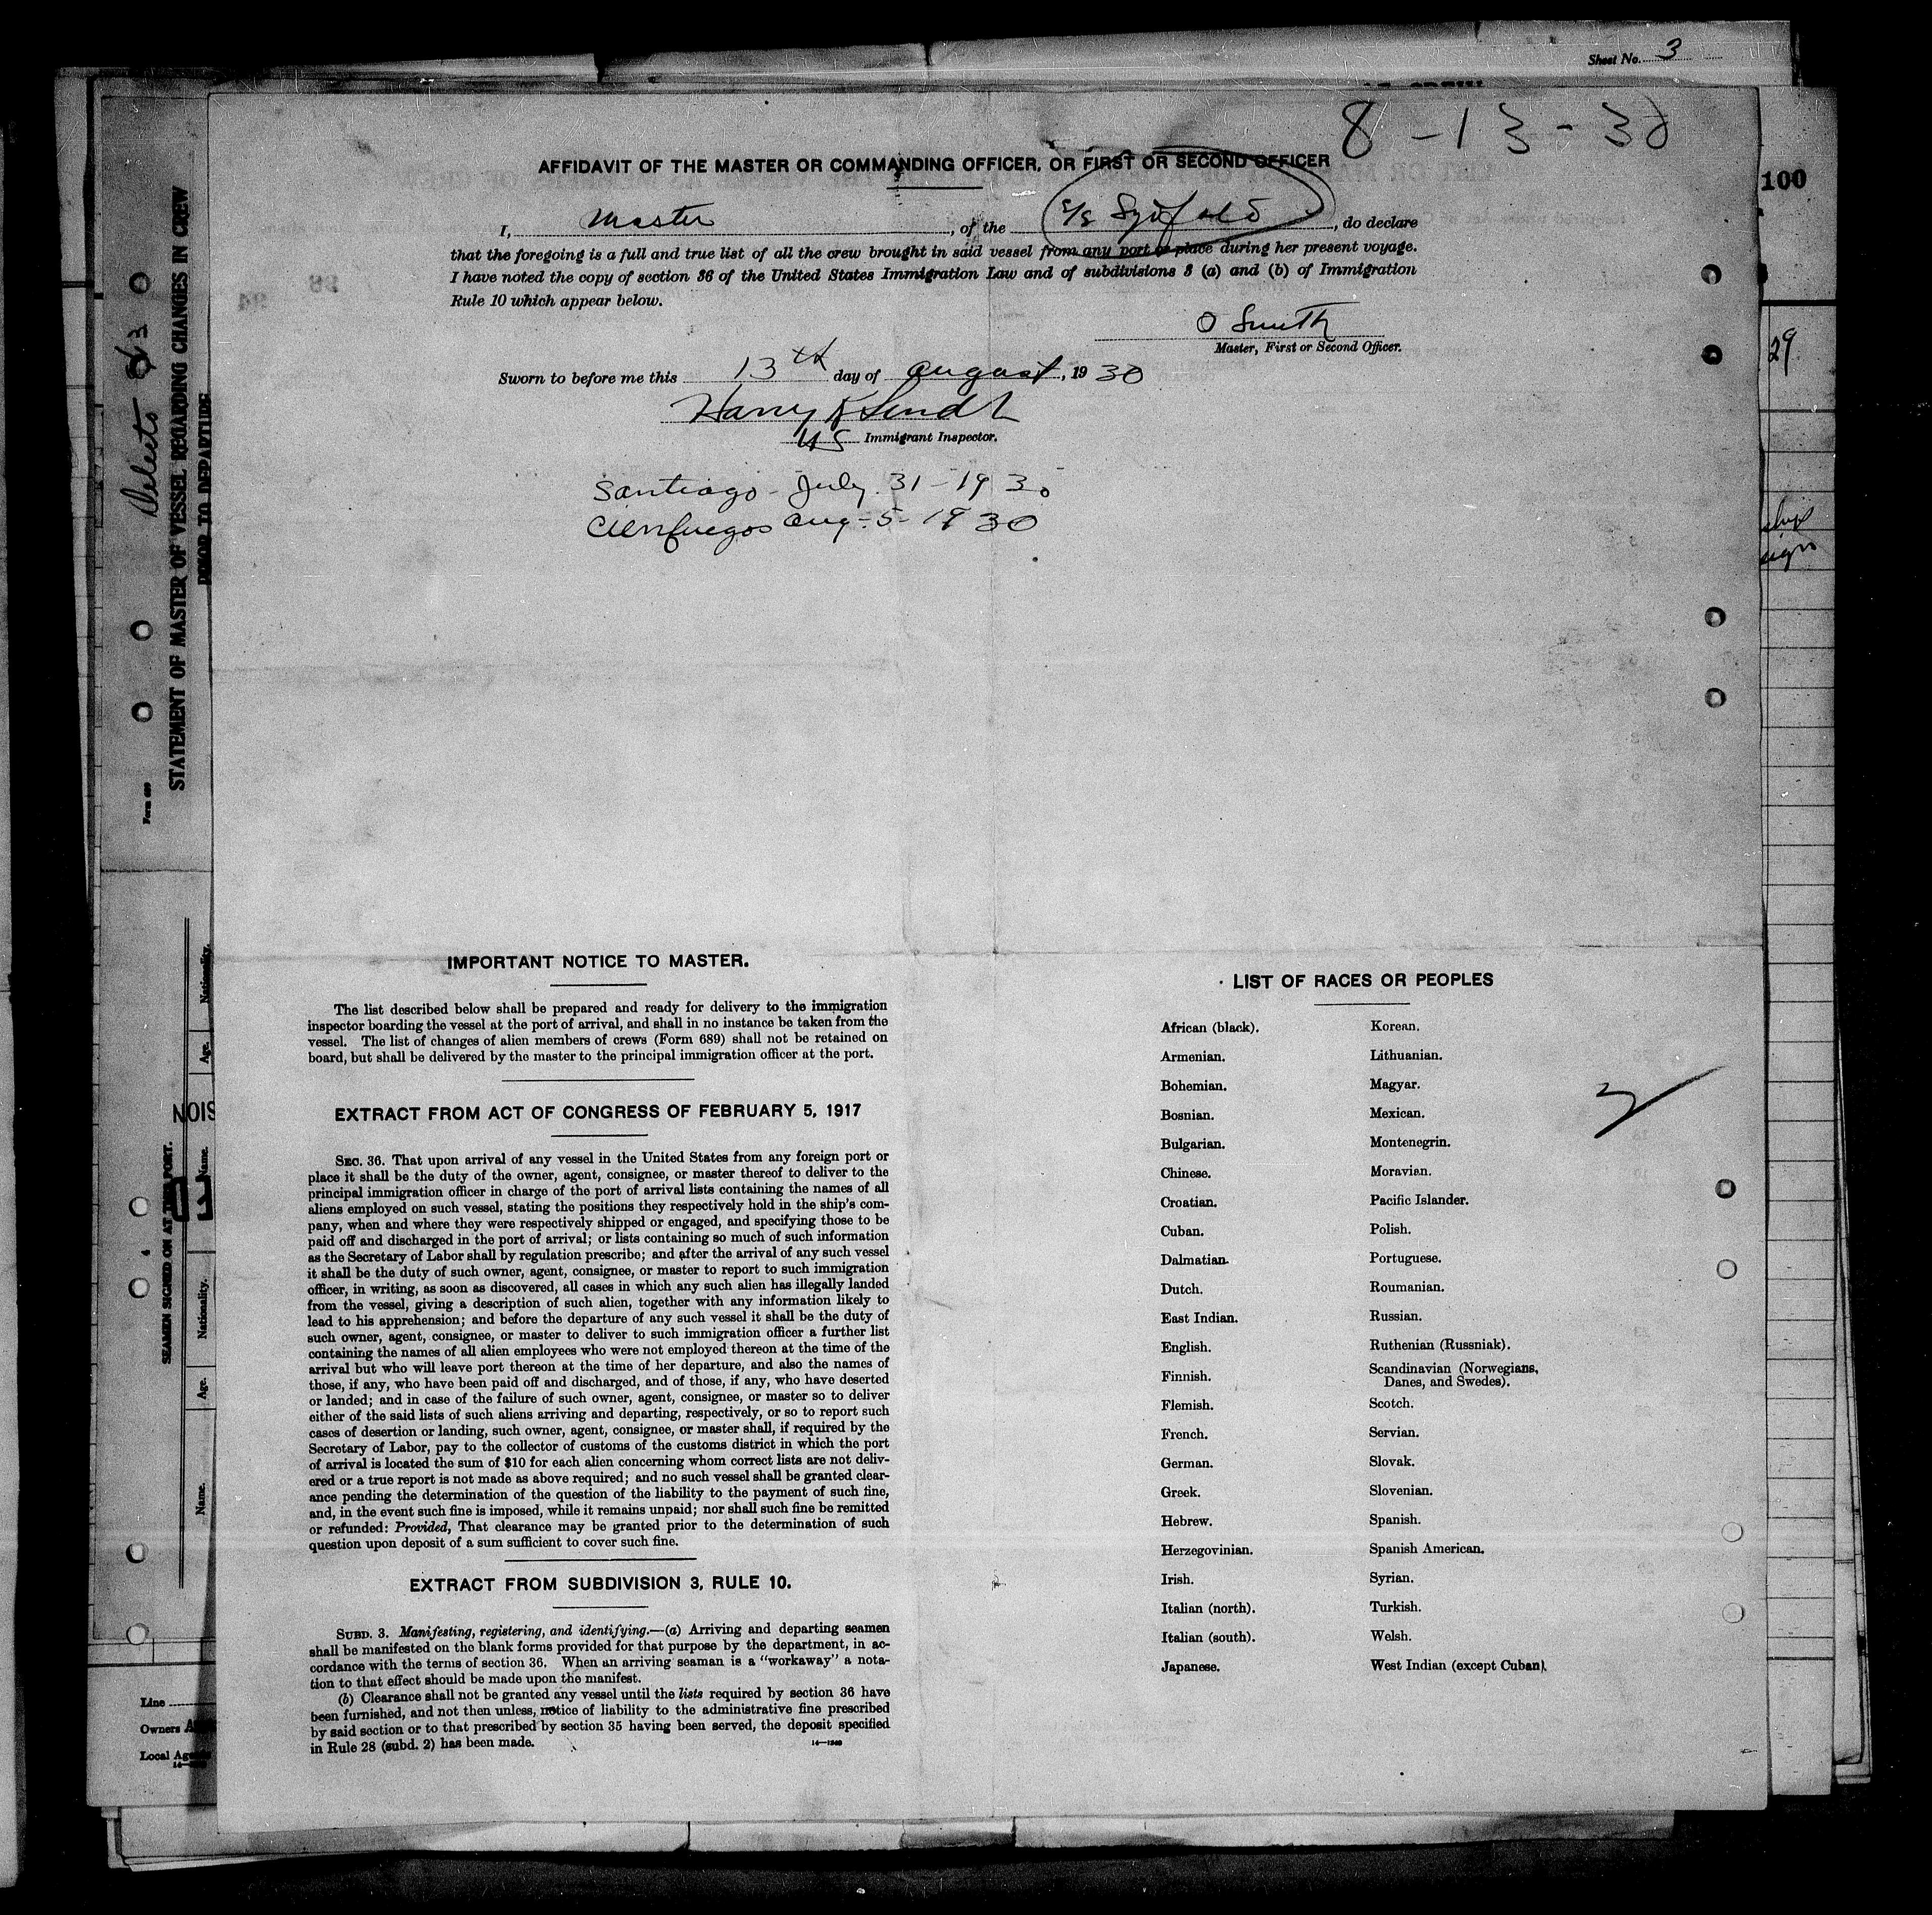 Sheet No. 3
8-13-30
AFFIDAVIT OF THE MASTER OR COMMANDING OFFICER, OR FIRST OR SECOND OFFICER
100
I, Master, of the S/S, do declare
that the foregoing is a full and true list of all the crew brought in said vessel from any port or place during her present voyage.
I have noted the copy of section 36 of the United States Immigration Law and of subdivisions 3 (a) and (b) of Immigration
Rule 10 which appear below.
O Smith
Master, First or Second Officer.
29
Sworn to before me this 13th day of August, 1930
Harry K
US Immigrant Inspector.
Santiago - July 31-1930
Cienfuegos Aug-5-1930
STATEMENT OF MASTER OF VESSEL REGARDING CHANGES IN CREW
PRIOR TO DEPARTURE
Form 689
Nationality.
Age.
Name.
SEAMEN SIGNED ON AT THIS PORT.
Nationality.
Age.
Name.
Line
Owners
Local
IMPORTANT NOTICE TO MASTER.
The list described below shall be prepared and ready for delivery to the immigration
inspector boarding the vessel at the port of arrival, and shall in no instance be taken from the
vessel. The list of changes of alien members of crews (Form 689) shall not be retained on
board, but shall be delivered by the master to the principal immigration officer at the port.
EXTRACT FROM ACT OF CONGRESS OF FEBRUARY 5, 1917
SEC. 36. That upon arrival of any vessel in the United States from any foreign port or
place it shall be the duty of the owner, agent, consignee, or master thereof to deliver to the
principal immigration officer in charge of the port of arrival lists containing the names of all
aliens employed on such vessel, stating the positions they respectively hold in the ship's com-
pany, when and where they were respectively shipped or engaged, and specifying those to be
paid off and discharged in the port of arrival; or lists containing so much of such information
as the Secretary of Labor shall by regulation prescribe; and after the arrival of any such vessel
it shall be the duty of such owner, agent, consignee, or master to report to such immigration
officer, in writing, as soon as discovered, all cases in which any such alien has illegally landed
from the vessel, giving a description of such alien, together with any information likely to
lead to his apprehension; and before the departure of any such vessel it shall be the duty of
such owner, agent, consignee, or master to deliver to such immigration officer a further list
containing the names of all alien employees who were not employed thereon at the time of the
arrival but who will leave port thereon at the time of her departure, and also the names of
those, if any, who have been paid off and discharged, and of those, if any, who have deserted
or landed; and in case of the failure of such owner, agent, consignee, or master so to deliver
either of the said lists of such aliens arriving and departing, respectively, or so to report such
cases of desertion or landing, such owner, agent, consignee, or master shall, if required by the
Secretary of Labor, pay to the collector of customs of the customs district in which the port
of arrival is located the sum of $10 for each alien concerning whom correct lists are not deliv-
ered or a true report is not made as above required; and no such vessel shall be granted clear-
ance pending the determination of the question of the liability to the payment of such fine,
and, in the event such fine is imposed, while it remains unpaid; nor shall such fine be remitted
or refunded: Provided, That clearance may be granted prior to the determination of such
question upon deposit of a sum sufficient to cover such fine.
EXTRACT FROM SUBDIVISION 3, RULE 10.
SUBD. 3. Manifesting, registering, and identifying.—(a) Arriving and departing seamen
shall be manifested on the blank forms provided for that purpose by the department, in ac-
cordance with the terms of section 36. When an arriving seaman is a "workaway" a nota-
tion to that effect should be made upon the manifest.
(b) Clearance shall not be granted any vessel until the lists required by section 36 have
been furnished, and not then unless, notice of liability to the administrative fine prescribed
by said section or to that prescribed by section 35 having been served, the deposit specified
in Rule 28 (subd. 2) has been made.
LIST OF RACES OR PEOPLES
African (black).
Armenian.
Bohemian.
Bosnian.
Bulgarian.
Chinese.
Croatian.
Cuban.
Dalmatian.
Dutch.
East Indian.
English.
Finnish.
Flemish.
French.
German.
Greek.
Hebrew.
Herzegovinian.
Irish.
Italian (north).
Italian (south).
Japanese.
Korean.
Lithuanian.
Magyar.
Mexican.
Montenegrin.
Moravian.
Pacific Islander.
Polish.
Portuguese.
Roumanian.
Russian.
Ruthenian (Russniak).
Scandinavian (Norwegians,
Danes, and Swedes).
Scotch.
Servian.
Slovak.
Slovenian.
Spanish.
Spanish American.
Syrian.
Turkish.
Welsh.
West Indian (except Cuban).